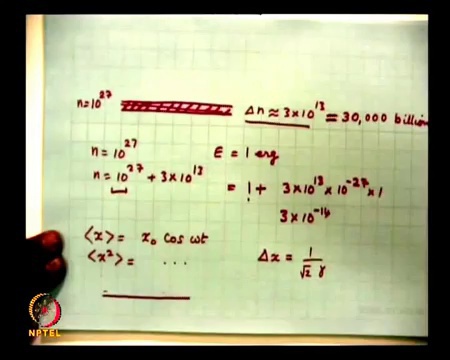 n=10^27 Δn ≈ 3×10^13 = 30,000 billion
n = 10^27 E = 1 erg
n = 10^27 + 3×10^13 = 1 + 3×10^13 × 10^-27 × 1
3×10^-14
⟨x⟩ = x₀ cos ωt
⟨x²⟩ = ... Δx = 1/(√2 γ)
NPTEL